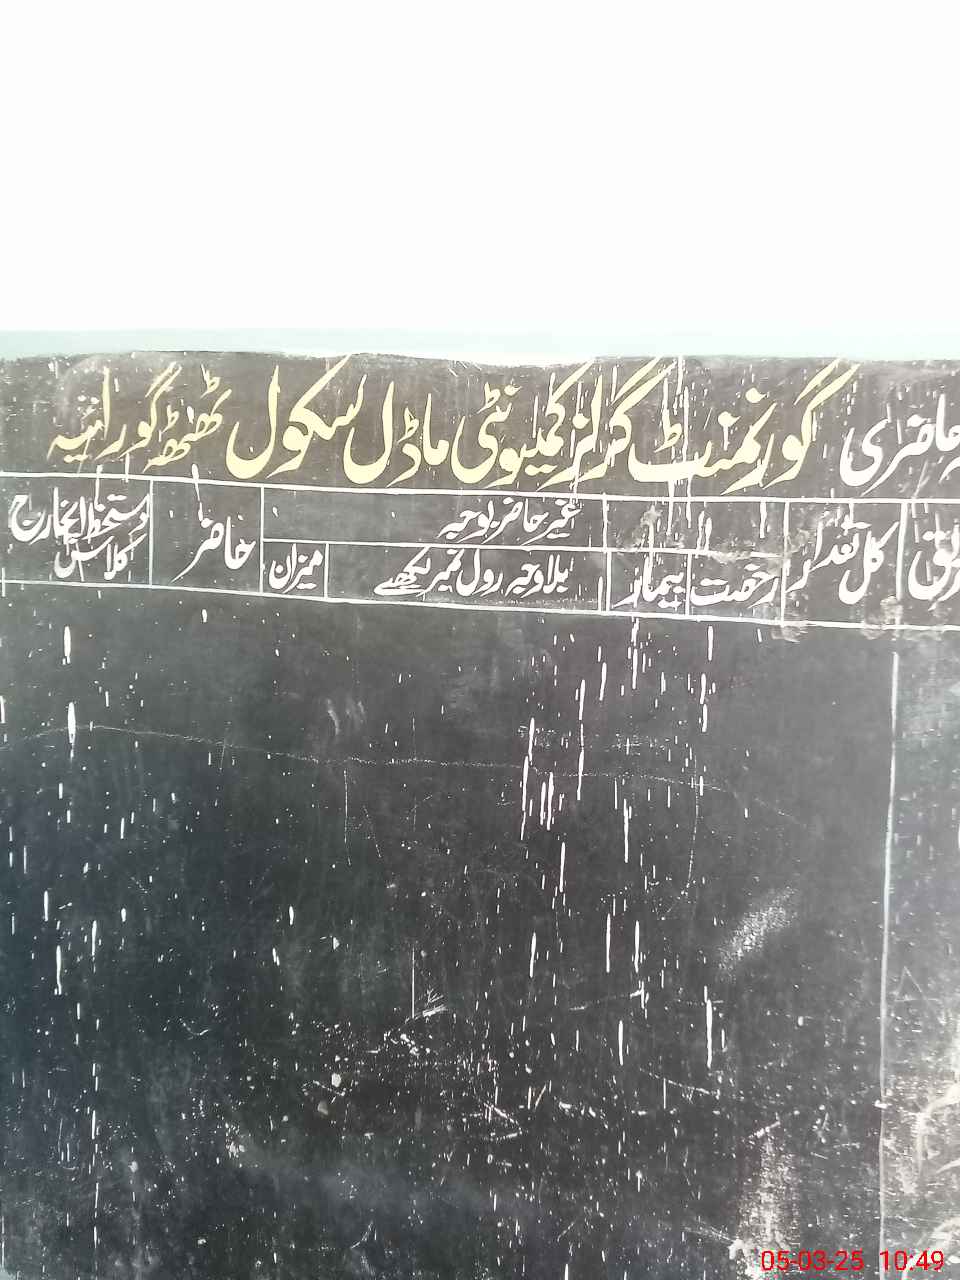 حاضری گورنمنٹ گرلز کمیونٹی ماڈل سکول ٹھٹھہ گورائیہ
کل تعداد
رخصت
بیمار
غیر حاضر بوجہ
بلاوجہ رول نمبر لکھے
میزان
حاضر
دستخط انچارج
کلاس
05-03-25 10:49